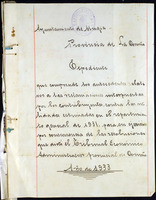 Ayuntamiento de
Provincia de La Coruña
Expediente
que comprende los antecedentes relati-
vos a las reclamaciones interpuestas
por los contribuyentes contra las
estimadas en el repartimien-
to general de 1931, para en
de las resoluciones
que dicte el Tribunal Económico
Administrativo provincial de Coruña
Año de 1933